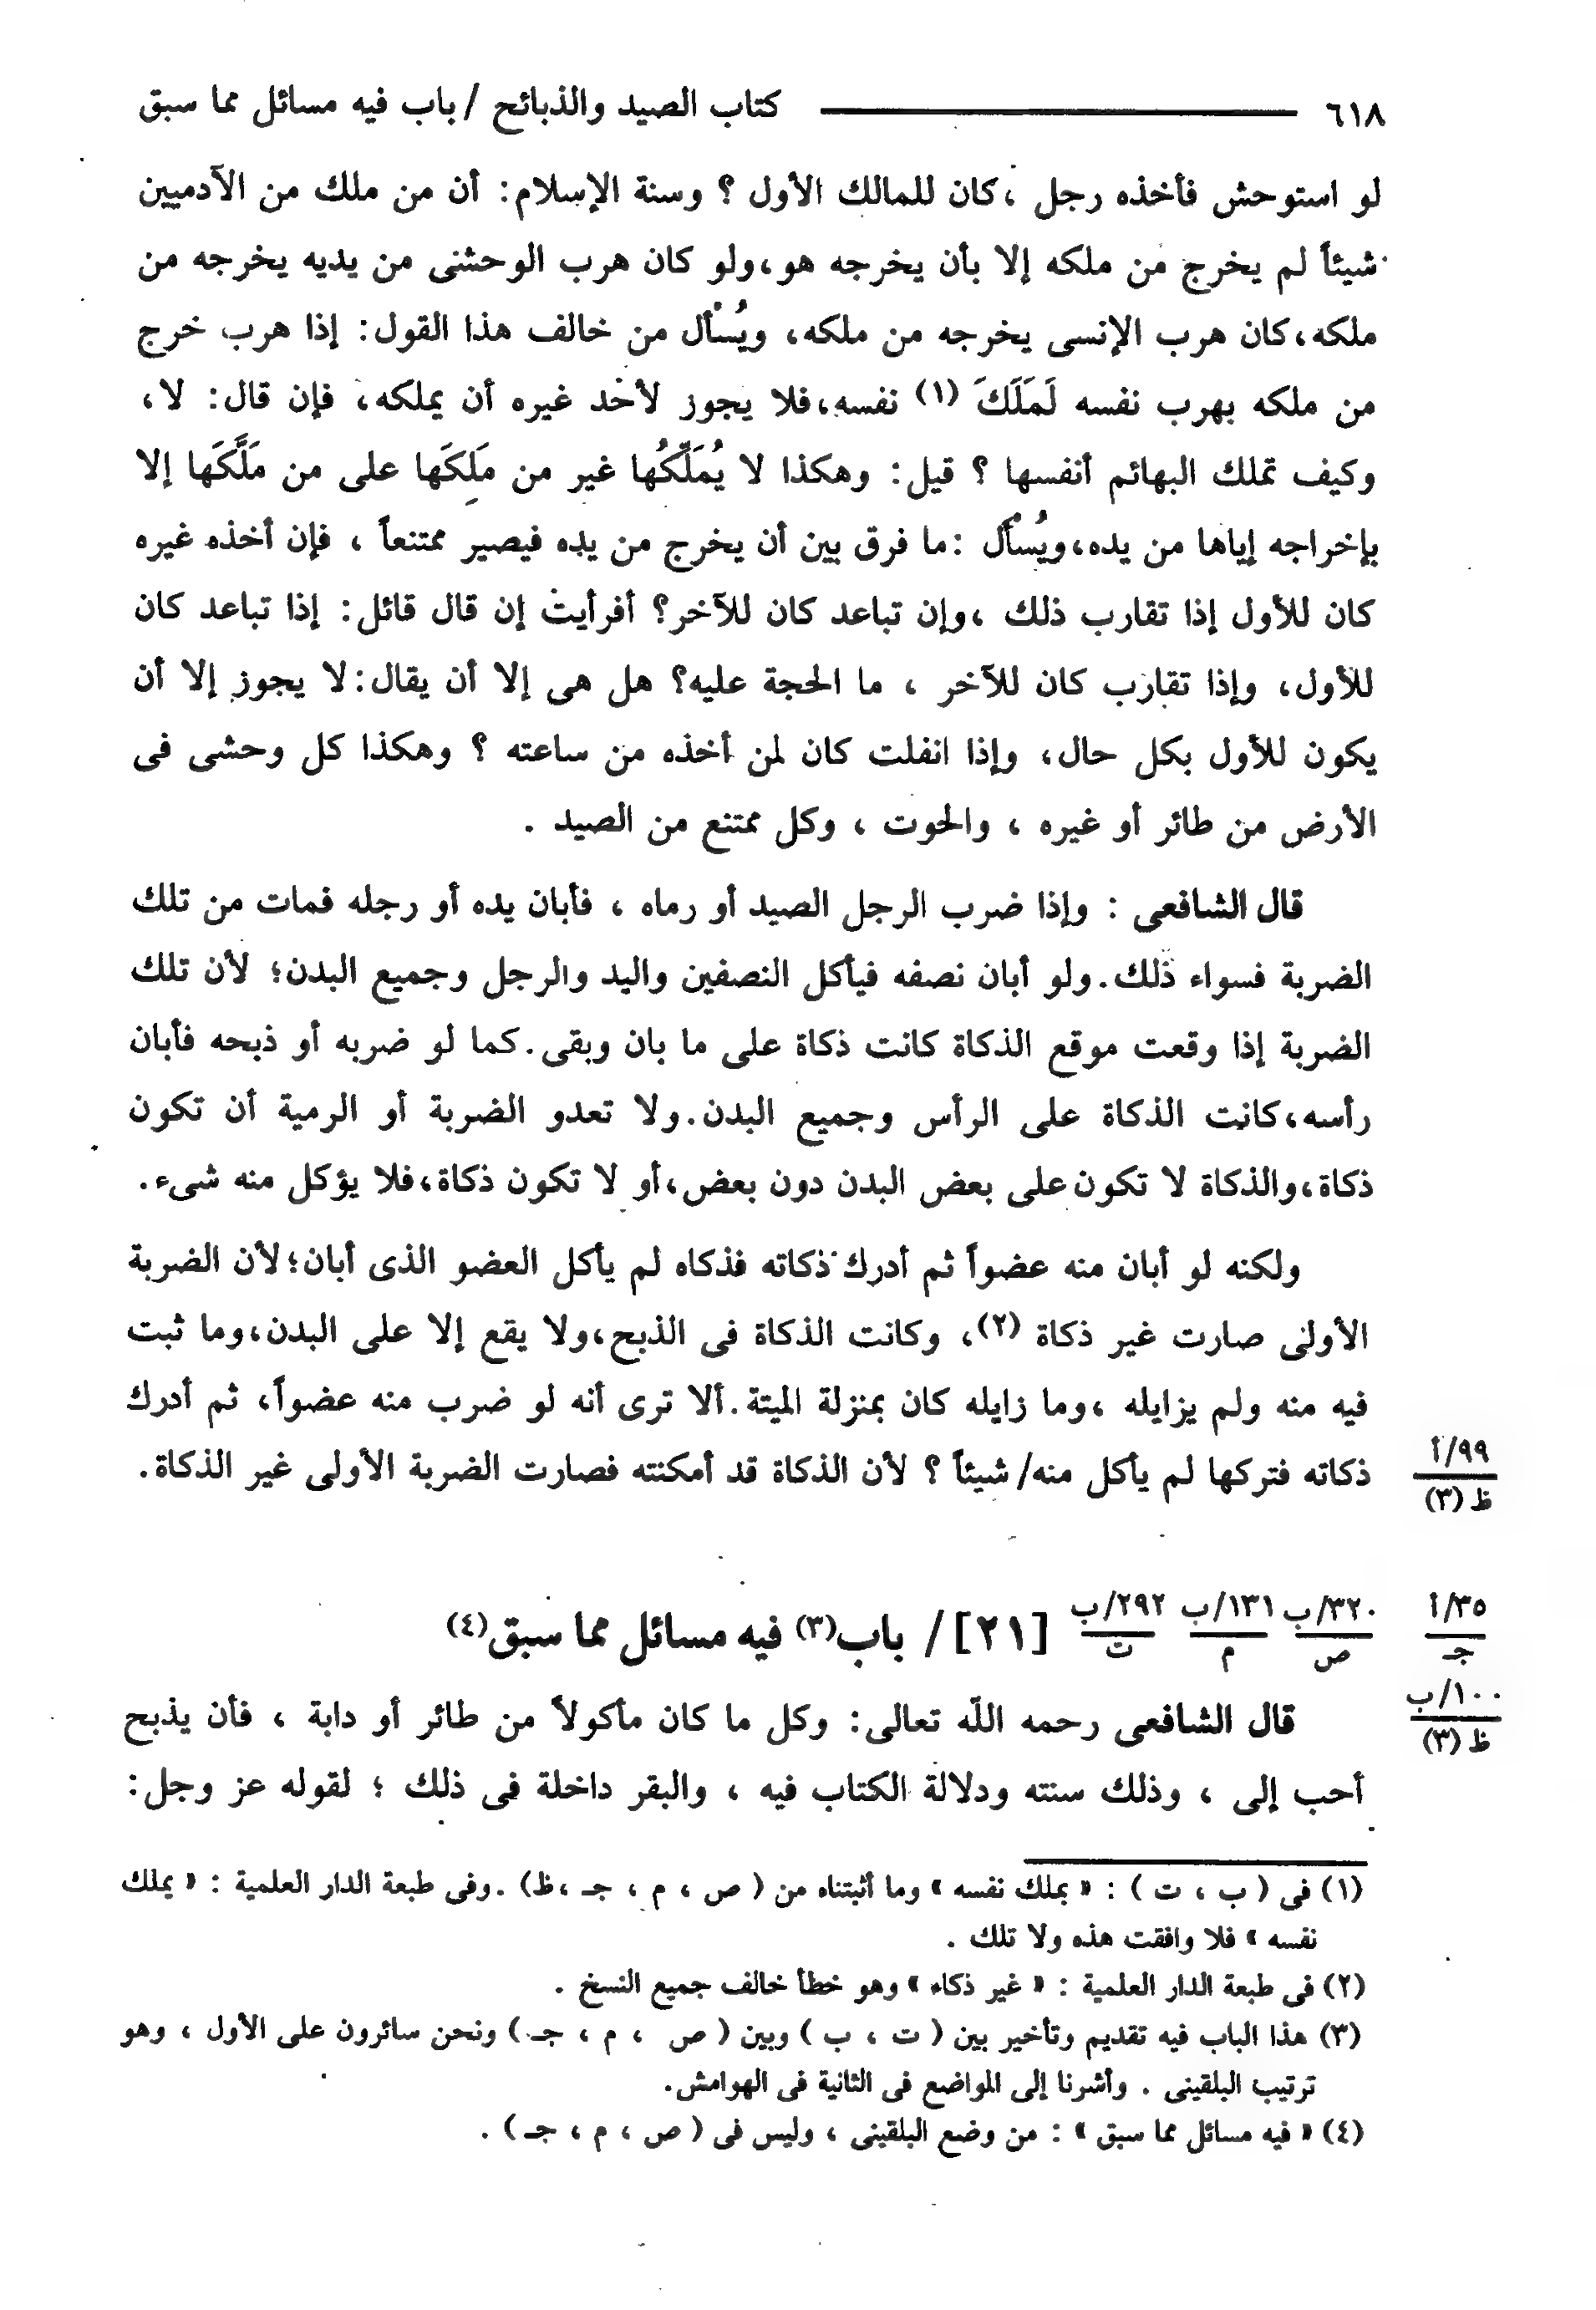 ٦١٨ كتاب الصيد والذبائح / باب فيه مسائل مما سبق
لو استوحش فأخذه رجل ، كان للمالك الأول ؟ وسنة الإسلام: أن من ملك من الآدميين
شيئاً لم يخرج من ملكه إلا بأن يخرجه هو، ولو كان هرب الوحشى من يديه يخرجه من
ملكه، كان هرب الإنسى يخرجه من ملكه، ويُسأل من خالف هذا القول: إذا هرب خرج
من ملكه بهرب نفسه لَمَلَكَ (١) نفسه، فلا يجوز لأحد غيره أن يملكه، فإن قال: لا،
وكيف تملك البهائم أنفسها ؟ قيل: وهكذا لا يُمَلِّكُها غير من مَلِكَها على من مَلَّكَها إلا
بإخراجه إياها من يده، ويُسأل : ما فرق بين أن يخرج من يده فيصير ممتنعاً ، فإن أخذه غيره
كان للأول إذا تقارب ذلك ، وإن تباعد كان للآخر؟ أفرأيت إن قال قائل: إذا تباعد كان
للأول، وإذا تقارب كان للآخر ، ما الحجة عليه؟ هل هى إلا أن يقال: لا يجوز إلا أن
يكون للأول بكل حال، وإذا انفلت كان لمن أخذه من ساعته ؟ وهكذا كل وحشى فى
الأرض من طائر أو غيره ، والحوت ، وكل ممتنع من الصيد .
قال الشافعى : وإذا ضرب الرجل الصيد أو رماه ، فأبان يده أو رجله فمات من تلك
الضربة فسواء ذلك. ولو أبان نصفه فيأكل النصفين واليد والرجل وجميع البدن؛ لأن تلك
الضربة إذا وقعت موقع الذكاة كانت ذكاة على ما بان وبقى. كما لو ضربه أو ذبحه فأبان
رأسه، كانت الذكاة على الرأس وجميع البدن. ولا تعدو الضربة أو الرمية أن تكون
ذكاة، والذكاة لا تكون على بعض البدن دون بعض، أو لا تكون ذكاة، فلا يؤكل منه شىء.
ولكنه لو أبان منه عضواً ثم أدرك ذكاته فذكاه لم يأكل العضو الذى أبان؛ لأن الضربة
الأولى صارت غير ذكاة (٢)، وكانت الذكاة فى الذبح، ولا يقع إلا على البدن، وما ثبت
فيه منه ولم يزايله ، وما زايله كان بمنزلة الميتة. ألا ترى أنه لو ضرب منه عضواً، ثم أدرك
ذكاته فتركها لم يأكل منه/ شيئاً ؟ لأن الذكاة قد أمكنته فصارت الضربة الأولى غير الذكاة.
٩٩/أ
ظ (٣)
٣٥/أ
جـ
٣٢٠/ب
ص
١٣١/ب
م
٢٩٢/ب
ت
[٢١] / باب(٣) فيه مسائل مما سبق(٤)
١٠٠/ب
ظ (٣)
قال الشافعى رحمه الله تعالى: وكل ما كان مأكولاً من طائر أو دابة ، فأن يذبح
أحب إلى ، وذلك سنته ودلالة الكتاب فيه ، والبقر داخلة فى ذلك ؛ لقوله عز وجل:
(١) فى ( ب ، ت ) : « بملك نفسه » وما أثبتناه من ( ص ، م ، جـ ، ظ) . وفى طبعة الدار العلمية : « يملك
نفسه » فلا وافقت هذه ولا تلك .
(٢) فى طبعة الدار العلمية : « غير ذكاء » وهو خطأ خالف جميع النسخ .
(٣) هذا الباب فيه تقديم وتأخير بين ( ت ، ب ) وبين ( ص ، م ، جـ ) ونحن سائرون على الأول ، وهو
ترتيب البلقينى . وأشرنا إلى المواضع فى الثانية فى الهوامش.
(٤) « فيه مسائل مما سبق » : من وضع البلقينى ، وليس فى ( ص ، م ، جـ ) .